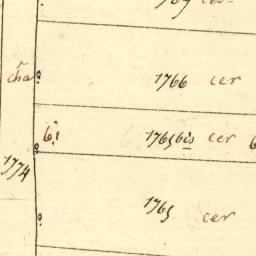 cha
1766 cer
1765bis cer
6
1774
1765 cer